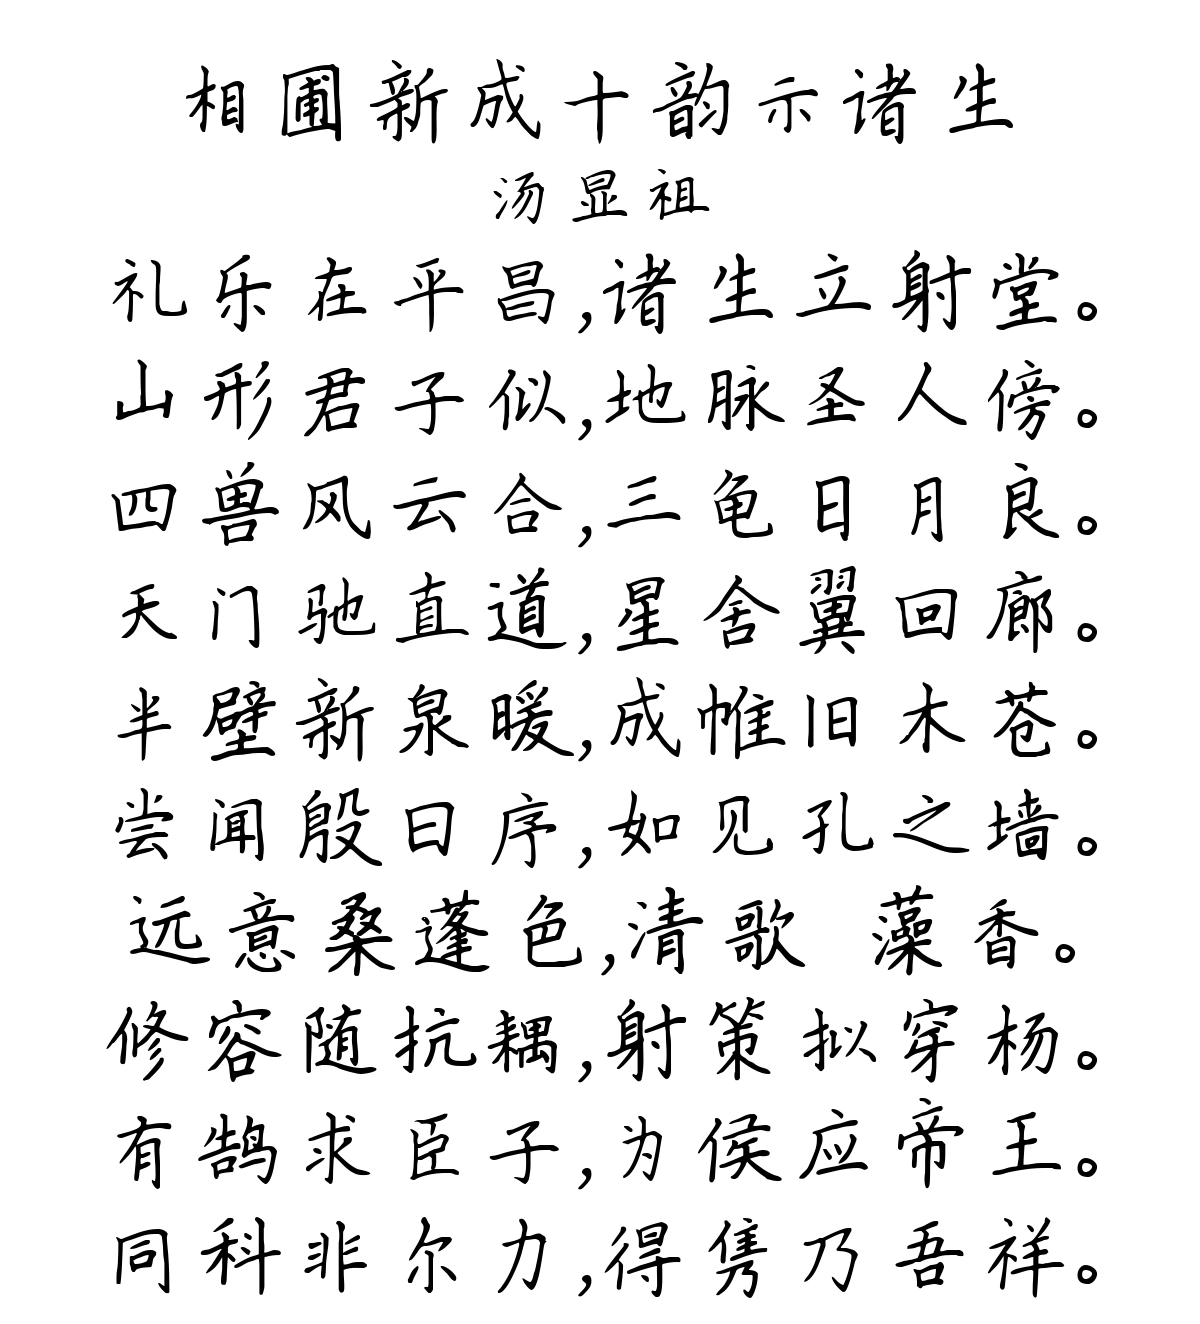 相圃新成十韵示诸生
汤显祖
礼乐在平昌,诸生立射堂。
山形君子似,地脉圣人傍。
四兽风云合,三龟日月良。
天门驰直道,星舍翼回廊。
半壁新泉暖,成帷旧木苍。
尝闻殷曰序,如见孔之墙。
远意桑蓬色,清歌 藻香。
修容随抗耦,射策拟穿杨。
有鹄求臣子,为侯应帝王。
同科非尔力,得隽乃吾祥。